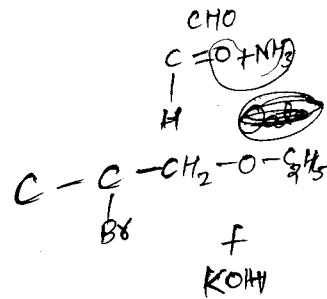 CHO
C=O+NH3
H
C-C-CH2-O-C2H5
Br
+
KOH